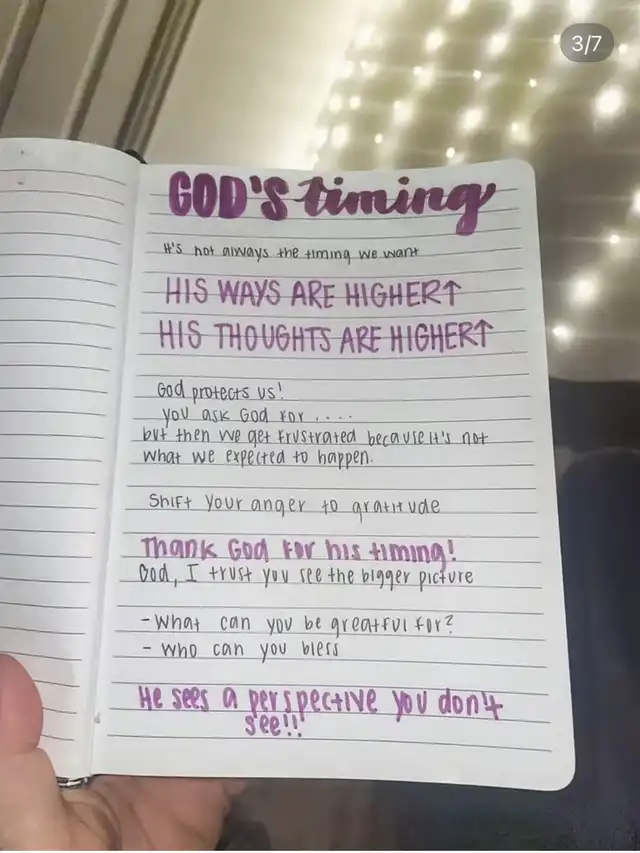 3/7
GOD'S timing
It's not always the timing we want
HIS WAYS ARE HIGHER↑
HIS THOUGHTS ARE HIGHER↑
God protects us!
you ask God for . . . .
but then we get frustrated because it's not
what we expected to happen.
Shift your anger to gratitude
Thank God for his timing!
God, I trust you see the bigger picture
- What can you be greatful for?
- who can you bless
He sees a perspective you don't
see!!